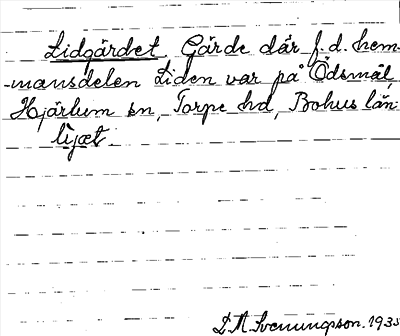 Lidgärdet. Gärde där f. d. hem-
mansdelen Liden var på Ödsmål,
Hjärtum sn, Torpe hd, Bohus län.
lìjæt.
D. A. Svenningson. 1935